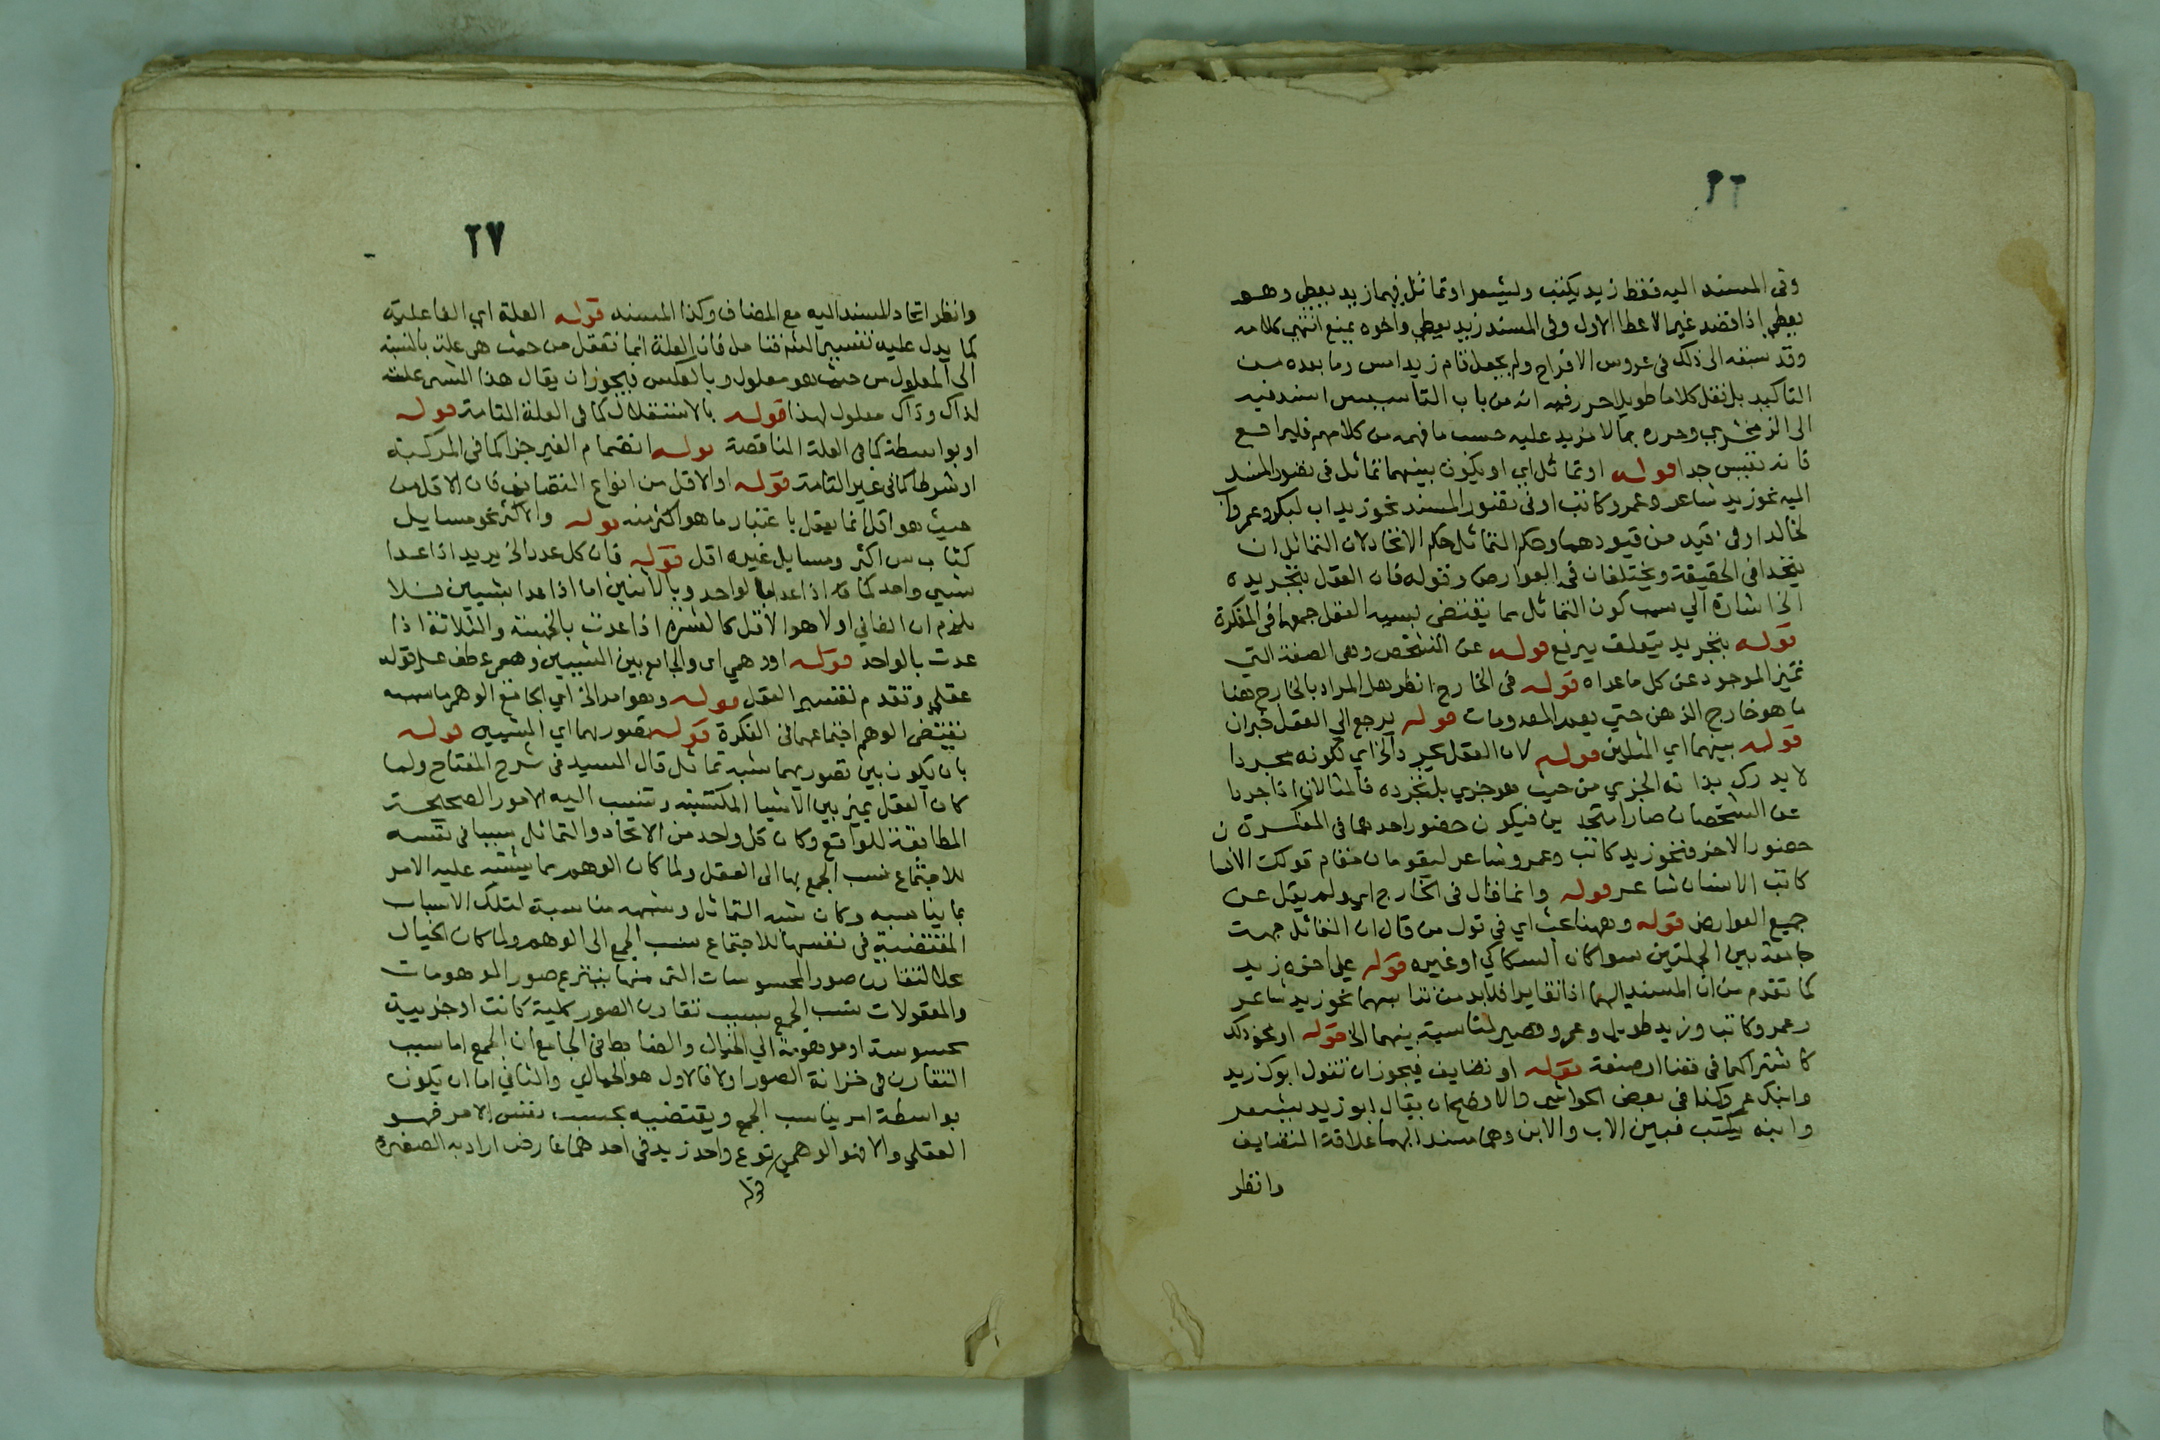 ٢٦
وفى المسند اليه فقط زيد يكتب ويشعر او تماثل فيهما زيد يعطي وهو
يعطي اذا قصد غير الاعطا الاول وفى المسند زيد يعطي واخوه يمنع انتهى كلامه
وقد سبقه الى ذلك فى عروس الافراح ولم يجعل قام زيد امس وما بعده من
التاكيد بل نقل كلاما طويلا حرر فيه انه من باب التاسيس استند فيه
الى الزمخشري وحرره بما لا مزيد عليه حسب ما فهمه من كلامهم فليراجع
فانه نفيس جدا قوله او تماثل اي او يكون بينهما تماثل فى تصور المسند
اليه نحو زيد شاعر وعمرو كاتب او فى تصور المسند نحو زيد اب لبكر وعمرو اب
لخالد او فى قيد من قيودهما وحكم التماثل حكم الاتحاد لان التماثل ان
يتحدا فى الحقيقة ويختلفان فى العوارض وقوله فان العقل بتجريده
الخ اشارة الي سبب كون التماثل مما يقتضى بسببه العقل جمعهما فى المفكرة
قوله بتجريد يتعلق بيرفع قوله عن التشخص وهى الصفة التي
تميز الموجود عن كل ماعداه قوله فى الخارج انظر هل المراد بالخارج هنا
ما هو خارج الذهن حتي يعم المعدومات قوله يرجع الي العقل خبر ان
قوله بينهما اي المثلين قوله لان العقل مجرد الخ اي لكونه مجردا
لا يدرك بذاته الجزي من حيث هو جزي بل بتجرده فالمثالان اذا جردا
عن التشخصات صارا متحدين فيكون حضور احدهما فى المفكرة
حضور الاخر فنحو زيد كاتب وعمرو شاعر ليقومان مقام قولك الانسا
كاتب الانسان شاعر قوله وانما قال فى الخارج اي ولم يقل عن
جميع العوارض قوله وههنا بحث اي فى قول من قال ان التماثل جهة
جامعة بين الجملتين سوا كان السكاكي او غيره قوله علي اخوة زيد
كما تقدم من ان المسند اليهما اذا تغايرا فلا بد من تناسبهما نحو زيد شاعر
وعمرو كاتب وزيد طويل وعمرو قصير لمناسبة بينهما الخ قوله او نحو ذلك
كاشتراكهما فى صفة قوله او تضايف فيجوز ان تقول ابوك زيد
وابنك عمرو كذا فى بعض الحواشى والاوضح ان يقال ابو زيد يشعر
وابنه يكتب فبين الاب والابن وهما مسند اليهما علاقة التضايف
وانظر
٢٧
وانظر اتحاد المسند اليه مع المضاف وكذا المسند قوله العلة اي الفاعلية
كما يدل عليه تفسير الشرفنا مل فان العلة انما تعقل من حيث هى علة بالنسبة
الى المعلول من حيث هو معلول وبالعكس فيجوز ان يقال هذا الشى علة
لذاك وذاك معلول لهذا قوله بالاستقلال كما فى العلة التامة قوله
او بواسطة كما فى العلة الناقصة قوله انضمام الغير جزا كما فى المركبة
او شرطا كما فى غير التامة قوله او الاقل من انواع التضايف فان الاقل من
حيث هو اقل انما يعقل باعتبار ما هو اكثر منه قوله والاكثر نحو مسايل
كتاب س اكثر ومسايل غيره اقل قوله فان كل عدد الخ يريد اذا عدا
بشيي واحد كما فى اذا عدا بالواحد وبالاثنين اما اذا عدا بشييين فلا
يلزم ان الفاني اولا هو الاقل كالعشرة اذا عدت بالخمسة والثلاثة اذا
عدت بالواحد قوله او وهمي اى والجامع بين الشييين وهمى عطف على قوله
عقلي وتقدم تفسير العقل قوله وهو امر الخ اي الجامع الوهمى ما بسببه
يقتضى الوهم اجتماعهما فى الفكرة قوله تصوريهما اي الشييين قوله
بان يكون بين تصوريهما شبه تماثل قال السيد فى شرح المفتاح ولما
كان العقل يميز بين الاشيا المكتسبة وتنسب اليه الامور الصحيحة
المطابقة للواقع وكان كل واحد من الاتحاد والتماثل سببا فى نفسه
للاجتماع نسب الجمع بها الى العقل ولما كان الوهم مما يشتبه عليه الامر
بما يناسبه وكان شبه التماثل وشبهه مناسبة لتلك الاسباب
المقتضية فى نفسها للاجتماع نسب الجمع الى الوهم ولما كان الخيال
محلا لتقارن صور المحسوسات التى منها ينتزع صور الموهومات
والمعقولات نسب الجمع بسبب تقارن الصور كلية كانت او جزيية
محسوسة او موهومة الي الخيال والضابط فى الجامع ان الجمع اما بسبب
التقارن فى خزانة الصور اولا فالاول هو الخيالي والثاني اما ان يكون
بواسطة امر يناسب الجمع ويقتضيه بحسب نفس الامر فهو
العقلي والا فهو الوهمي نوع واحد زيد فى احدهما عارض اراد به الصفرة
قوله